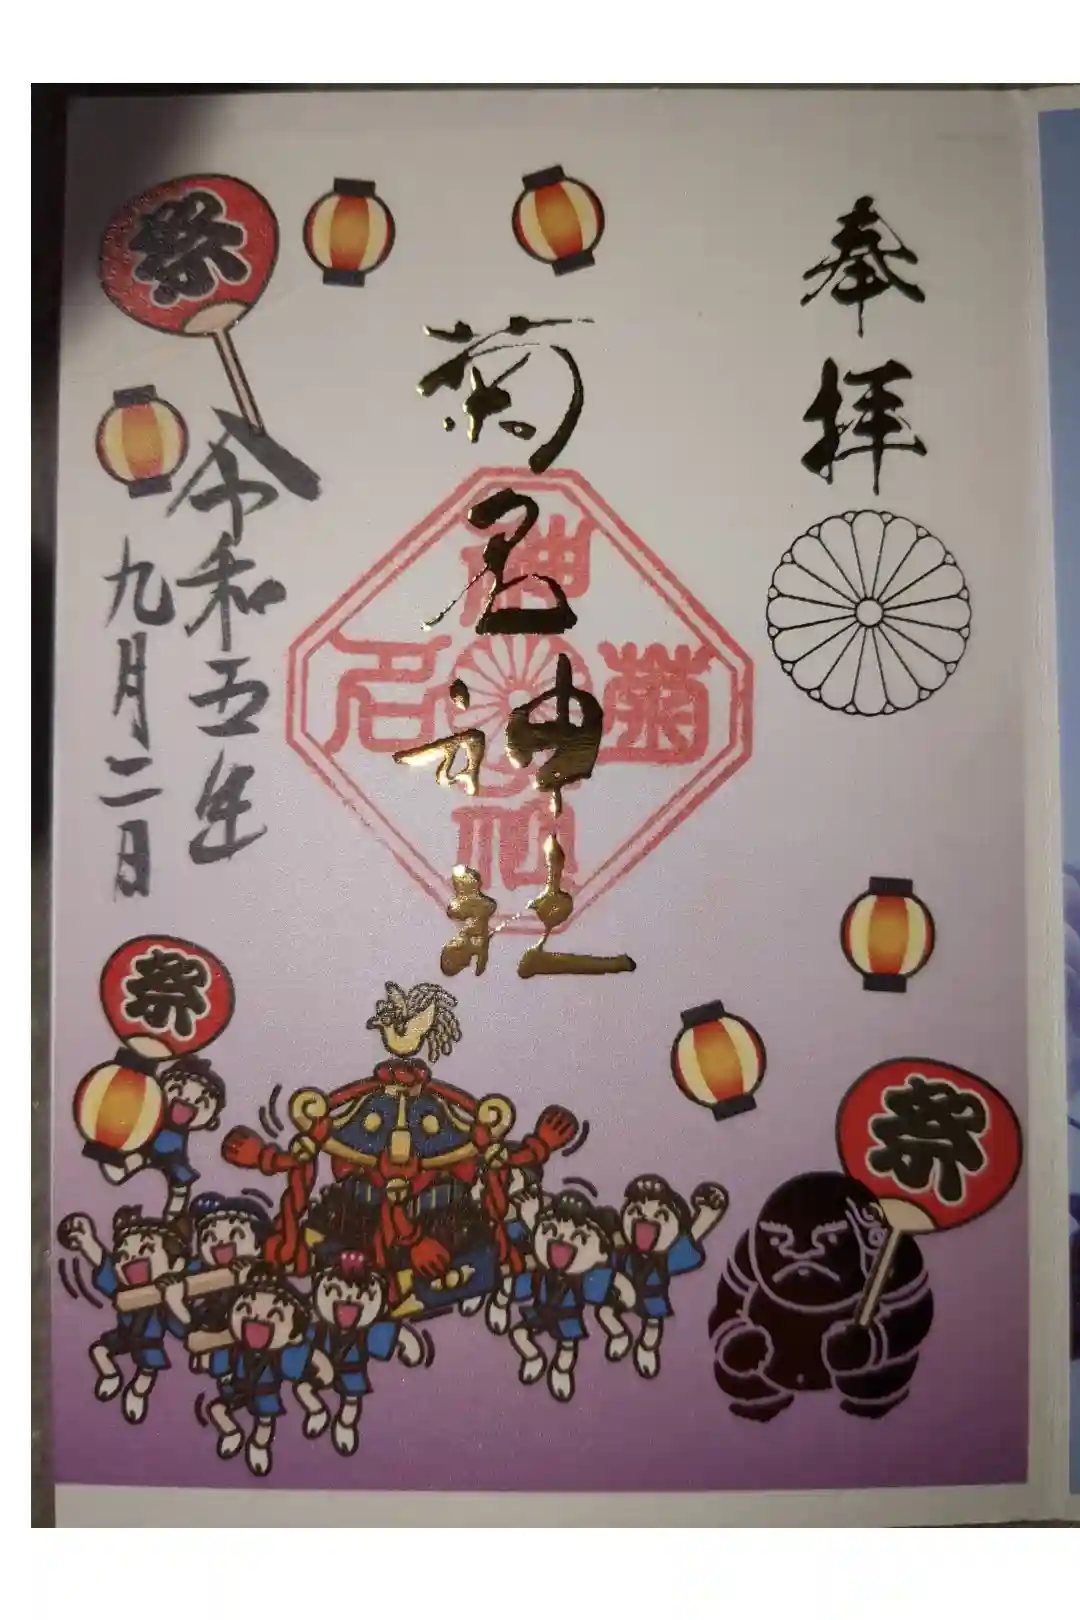 奉拝
菊名神社
菊名神社
令和五年
九月二日
祭
祭
祭